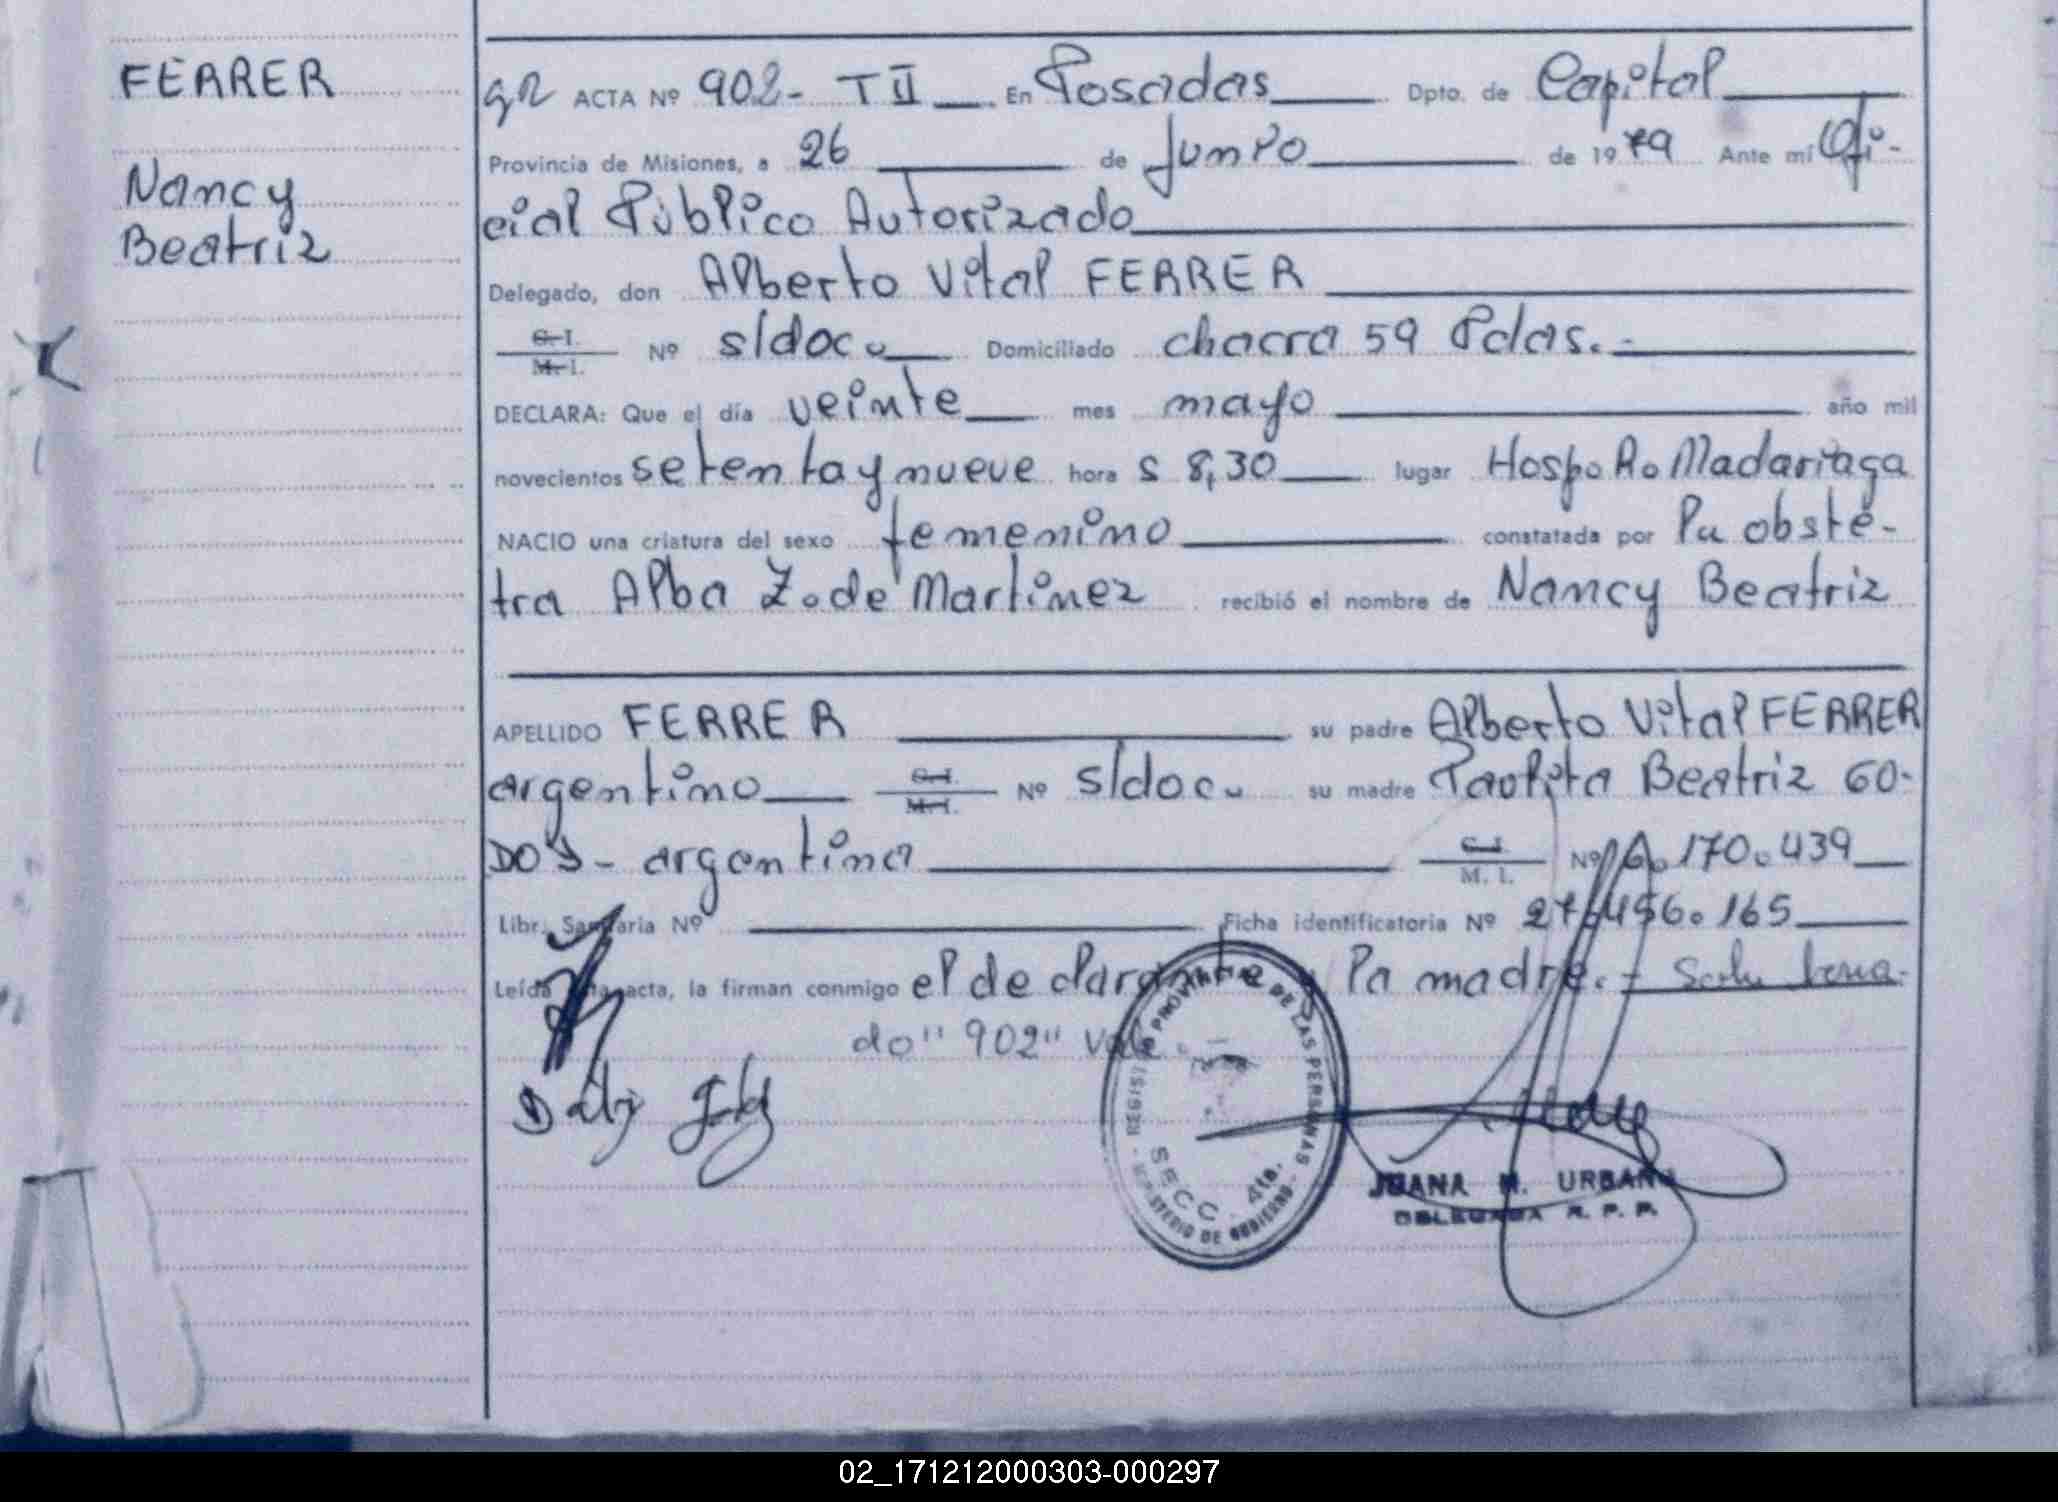 FERRER
Nancy
Beatriz
ACTA Nº 902- T II En Posadas Dpto. de Capital
Provincia de Misiones, a 26 de Junio de 1979 Ante mí Ofi-
cial Público Autorizado
Delegado, don Alberto Vital FERRER
C. I. M. I. Nº s/doc. Domiciliado chacra 59 Pdas.-
DECLARA: Que el día veinte mes mayo año mil
novecientos setenta y nueve hora s 8,30 lugar Hosp. R. Madariaga
NACIO una criatura del sexo femenino constatada por la obsté-
tra Alba Z. de Martinez recibió el nombre de Nancy Beatriz
APELLIDO FERRER su padre Alberto Vital FERRER
argentino C. I. M. I. Nº s/doc. su madre Paolita Beatriz GO-
DOY- argentina C. I. M. I. Nº 170.439
Libr. Sanitaria Nº Ficha identificatoria Nº 27.456.165
Leída esta acta, la firman conmigo el declarante y la madre.-
do "902" Vale
REGISTRO PROVINCIAL DE LAS PERSONAS
SECC. 4ta.
- MINISTERIO DE GOBIERNO -
JUANA M. URBANO
DELEGADA R. P. P.
02_171212000303-000297